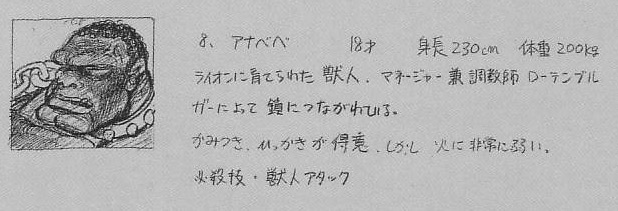 8、アナベベ 18才 身長230cm 体重200kg
ライオンに育てられた獣人、マネージャー兼調教師ローテンブル
ガーによって鎖につながれている。
かみつき、ひっかきが得意、しかし火に非常に弱い。
必殺技・獣人アタック